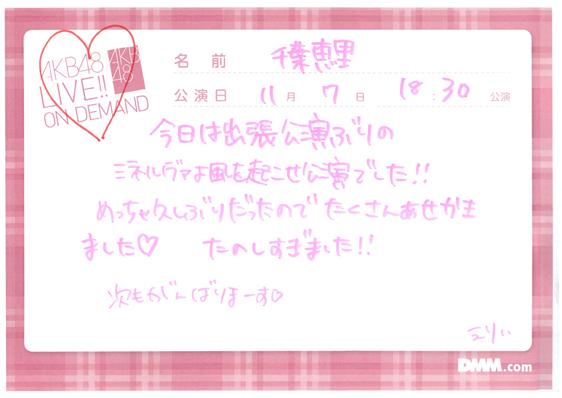 AKB48
LIVE!!
ON DEMAND
AKB
48
名前 千葉恵里
公演日 11月7日 18:30公演
今日は出張公演ぶりの
ミネルヴァよ風を起こせ公演でした!!
めっちゃ久しぶりだったので たくさんあせかき
ました♡ たのしすぎました!!
次もがんばりまーす♡
えりぃ
DMM.com